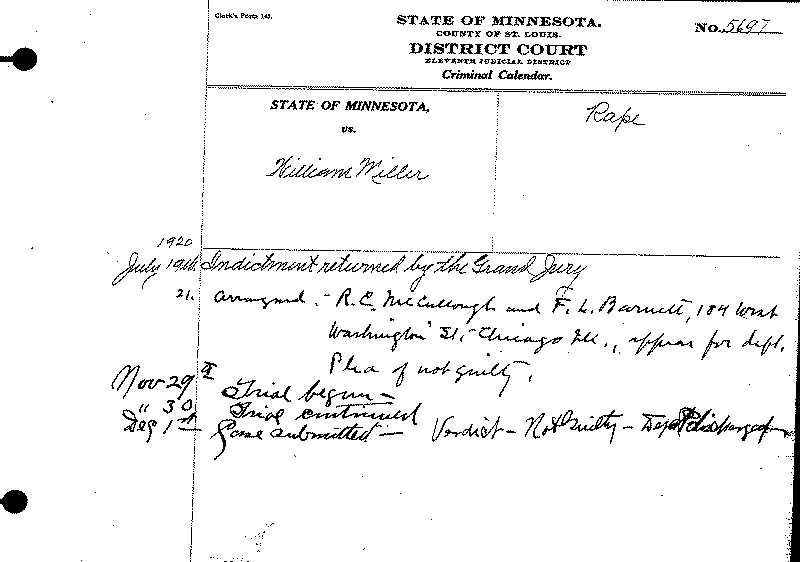 Clerk's Form 143.
STATE OF MINNESOTA.
COUNTY OF ST. LOUIS.
DISTRICT COURT
ELEVENTH JUDICIAL DISTRICT
Criminal Calendar.
No. 5697
STATE OF MINNESOTA,
vs.
William Miller
Rape
1920
July 19th Indictment returned by the Grand Jury
21. arraigned. - R.C. McCullough and F. L. Barnett, 184 West
Washington St. - Chicago Ill., appear for deft.
Plea of not guilty.
Nov 29th Trial begun -
" 30 Trial continued
Dec 1st Case submitted - Verdict - Not Guilty - Deft discharged